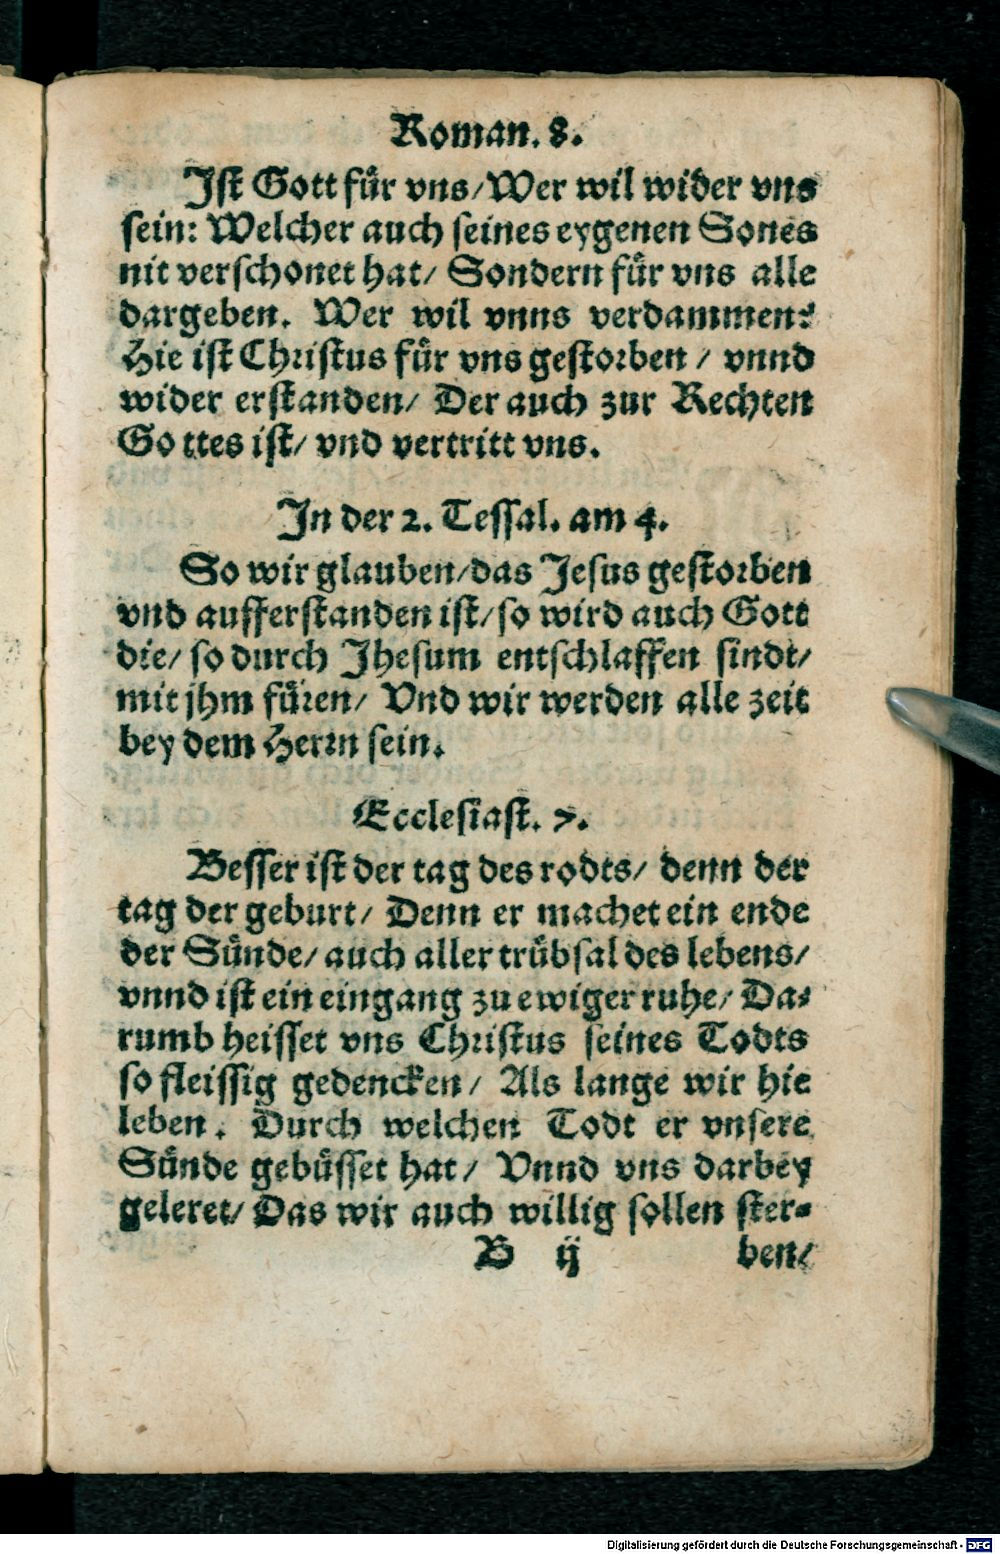 Roman. 8.
Jſt Gott fuͤr vns/ Wer wil wider vns
ſein: Welcher auch ſeines eygenen Sones
nit verſchonet hat/ Sondern fuͤr vns alle
dargeben. Wer wil vnns verdammen?
Hie iſt Chriſtus fuͤr vns geſtorben / vnnd
wider erſtanden/ Der auch zur Rechten
Gottes iſt/ vnd vertritt vns.
In der 2. Teſſal. am 4.
So wir glauben/ das Jeſus geſtorben
vnd aufferſtanden iſt/ ſo wird auch Gott
die/ ſo durch Jheſum entſchlaffen ſindt/
mit jhm fuͤren/ Vnd wir werden alle zeit
bey dem Herrn ſein.
Eccleſiaſt. 7.
Beſſer iſt der tag des todts/ denn der
tag der geburt/ Denn er machet ein ende
der Suͤnde/ auch aller truͤbſal des lebens/
vnnd iſt ein eingang zu ewiger ruhe/ Da⸗
rumb heiſſet vns Chriſtus ſeines Todts
ſo fleiſſig gedencken/ Als lange wir hie
leben. Durch welchen Todt er vnſere
Suͤnde gebuͤſſet hat/ Vnnd vns darbey
geleret/ Das wir auch willig ſollen ſter⸗
B ij ben/
Digitalisierung gefördert durch die Deutsche Forschungsgemeinschaft - DFG